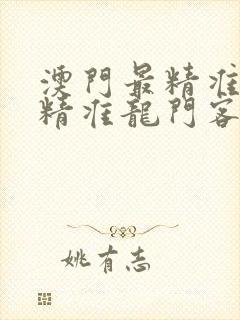 澳門最精准
精准龍門客
姚有志